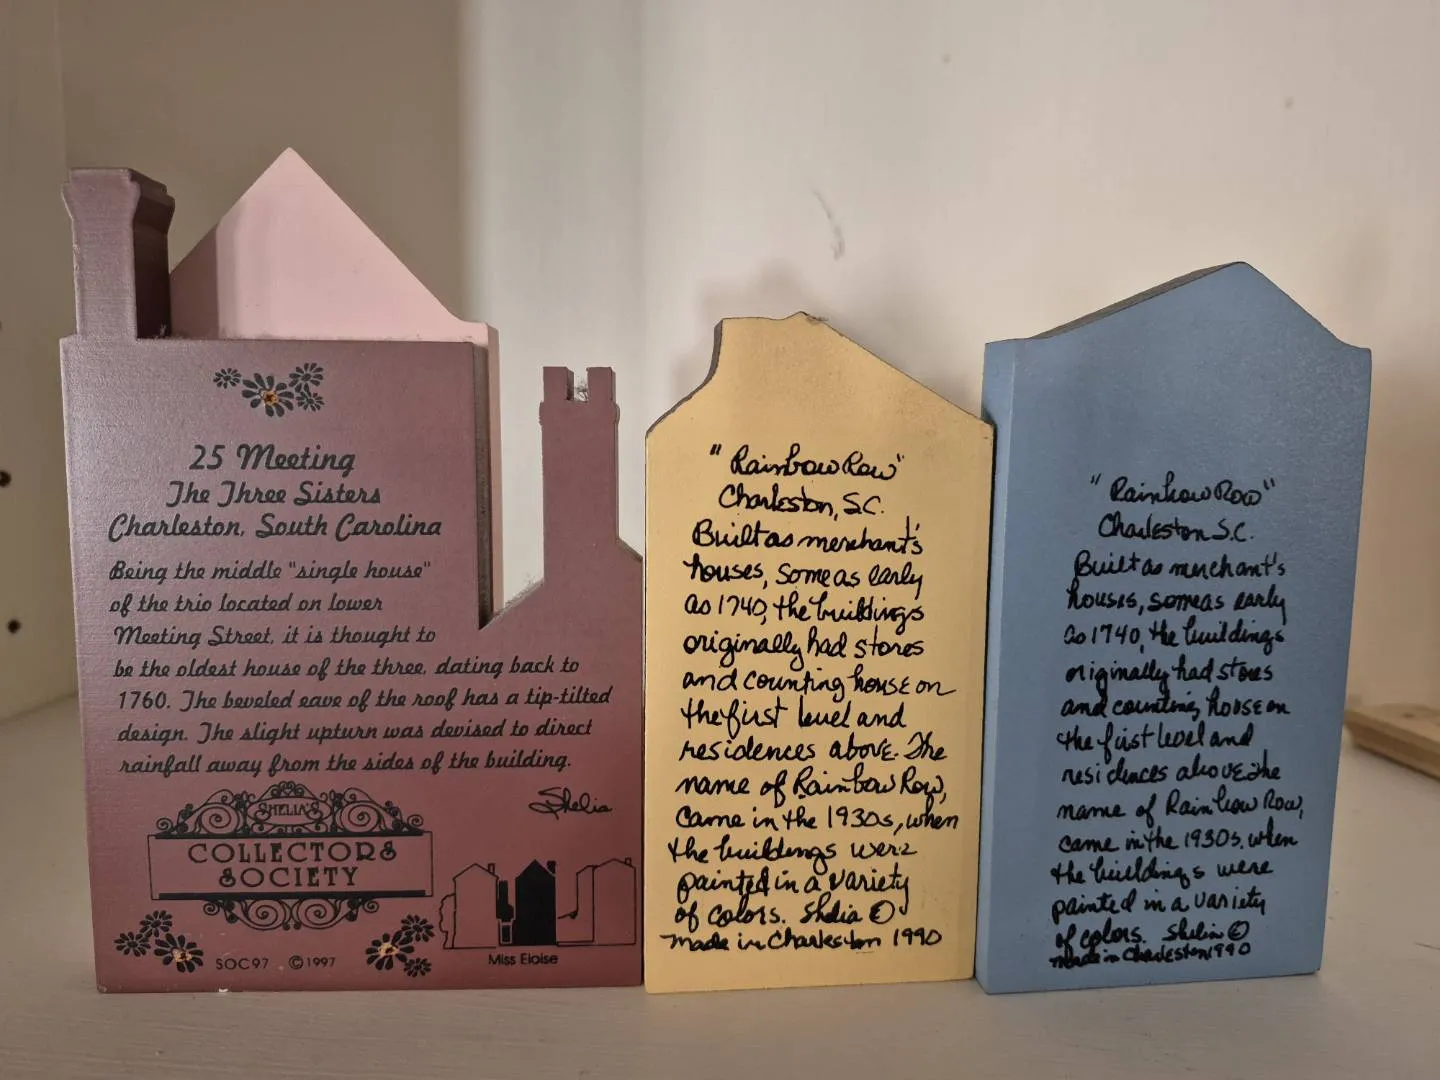 25 Meeting
The Three Sisters
Charleston, South Carolina
Being the middle "single house"
of the trio located on lower
Meeting Street, it is thought to
be the oldest house of the three, dating back to
1760. The beveled eave of the roof has a tip-tilted
design. The slight upturn was devised to direct
rainfall away from the sides of the building.
Shelia
SHELIA'S
COLLECTORS
SOCIETY
SOC97 ©1997
Miss Eloise
"Rainbow Row"
Charleston, S.C.
Built as merchant's
houses, some as early
as 1740, the buildings
originally had stores
and counting house on
the first level and
residences above. The
name of Rainbow Row,
came in the 1930s, when
the buildings were
painted in a variety
of colors. Shelia ©
made in Charleston 1990
"Rainbow Row"
Charleston S.C.
Built as merchant's
houses, some as early
as 1740, the buildings
originally had stores
and counting house on
the first level and
residences above. The
name of Rainbow Row,
came in the 1930s, when
the buildings were
painted in a variety
of colors. Shelia ©
made in Charleston 1990